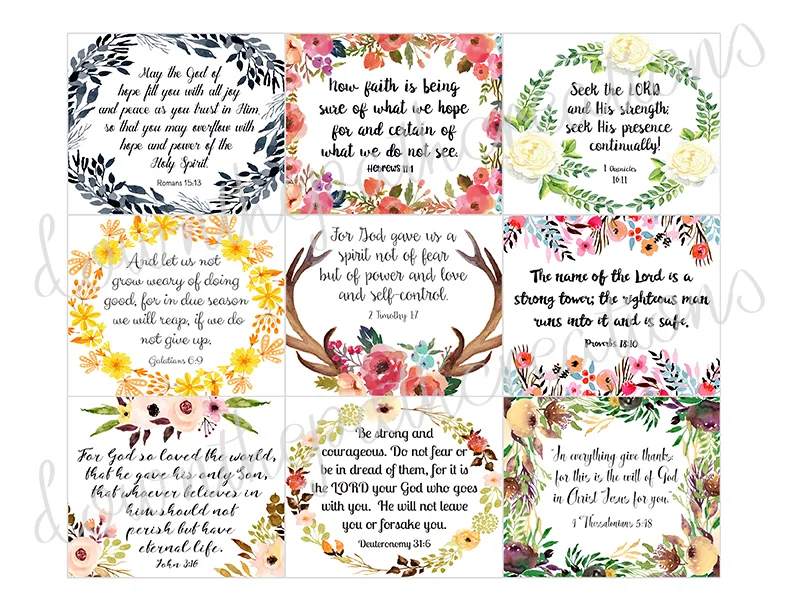 May the God of
hope fill you with all joy
and peace as you trust in Him,
so that you may overflow with
hope and power of the
Holy Spirit.
Romans 15:13
Now faith is being
sure of what we hope
for and certain of
what we do not see.
Hebrews 11:1
Seek the LORD
and His strength;
seek His presence
continually!
1 Chronicles
16:11
And let us not
grow weary of doing
good, for in due season
we will reap, if we do
not give up.
Galatians 6:9
For God gave us a
spirit not of fear
but of power and love
and self-control.
2 Timothy 1:7
The name of the Lord is a
strong tower; the righteous man
runs into it and is safe.
Proverbs 18:10
For God so loved the world,
that he gave his only Son,
that whoever believes in
him should not
perish but have
eternal life.
John 3:16
Be strong and
courageous. Do not fear or
be in dread of them, for it is
the LORD your God who goes
with you. He will not leave
you or forsake you.
Deuteronomy 31:6
"In everything give thanks:
for this is the will of God
in Christ Jesus for you."
1 Thessalonians 5:18